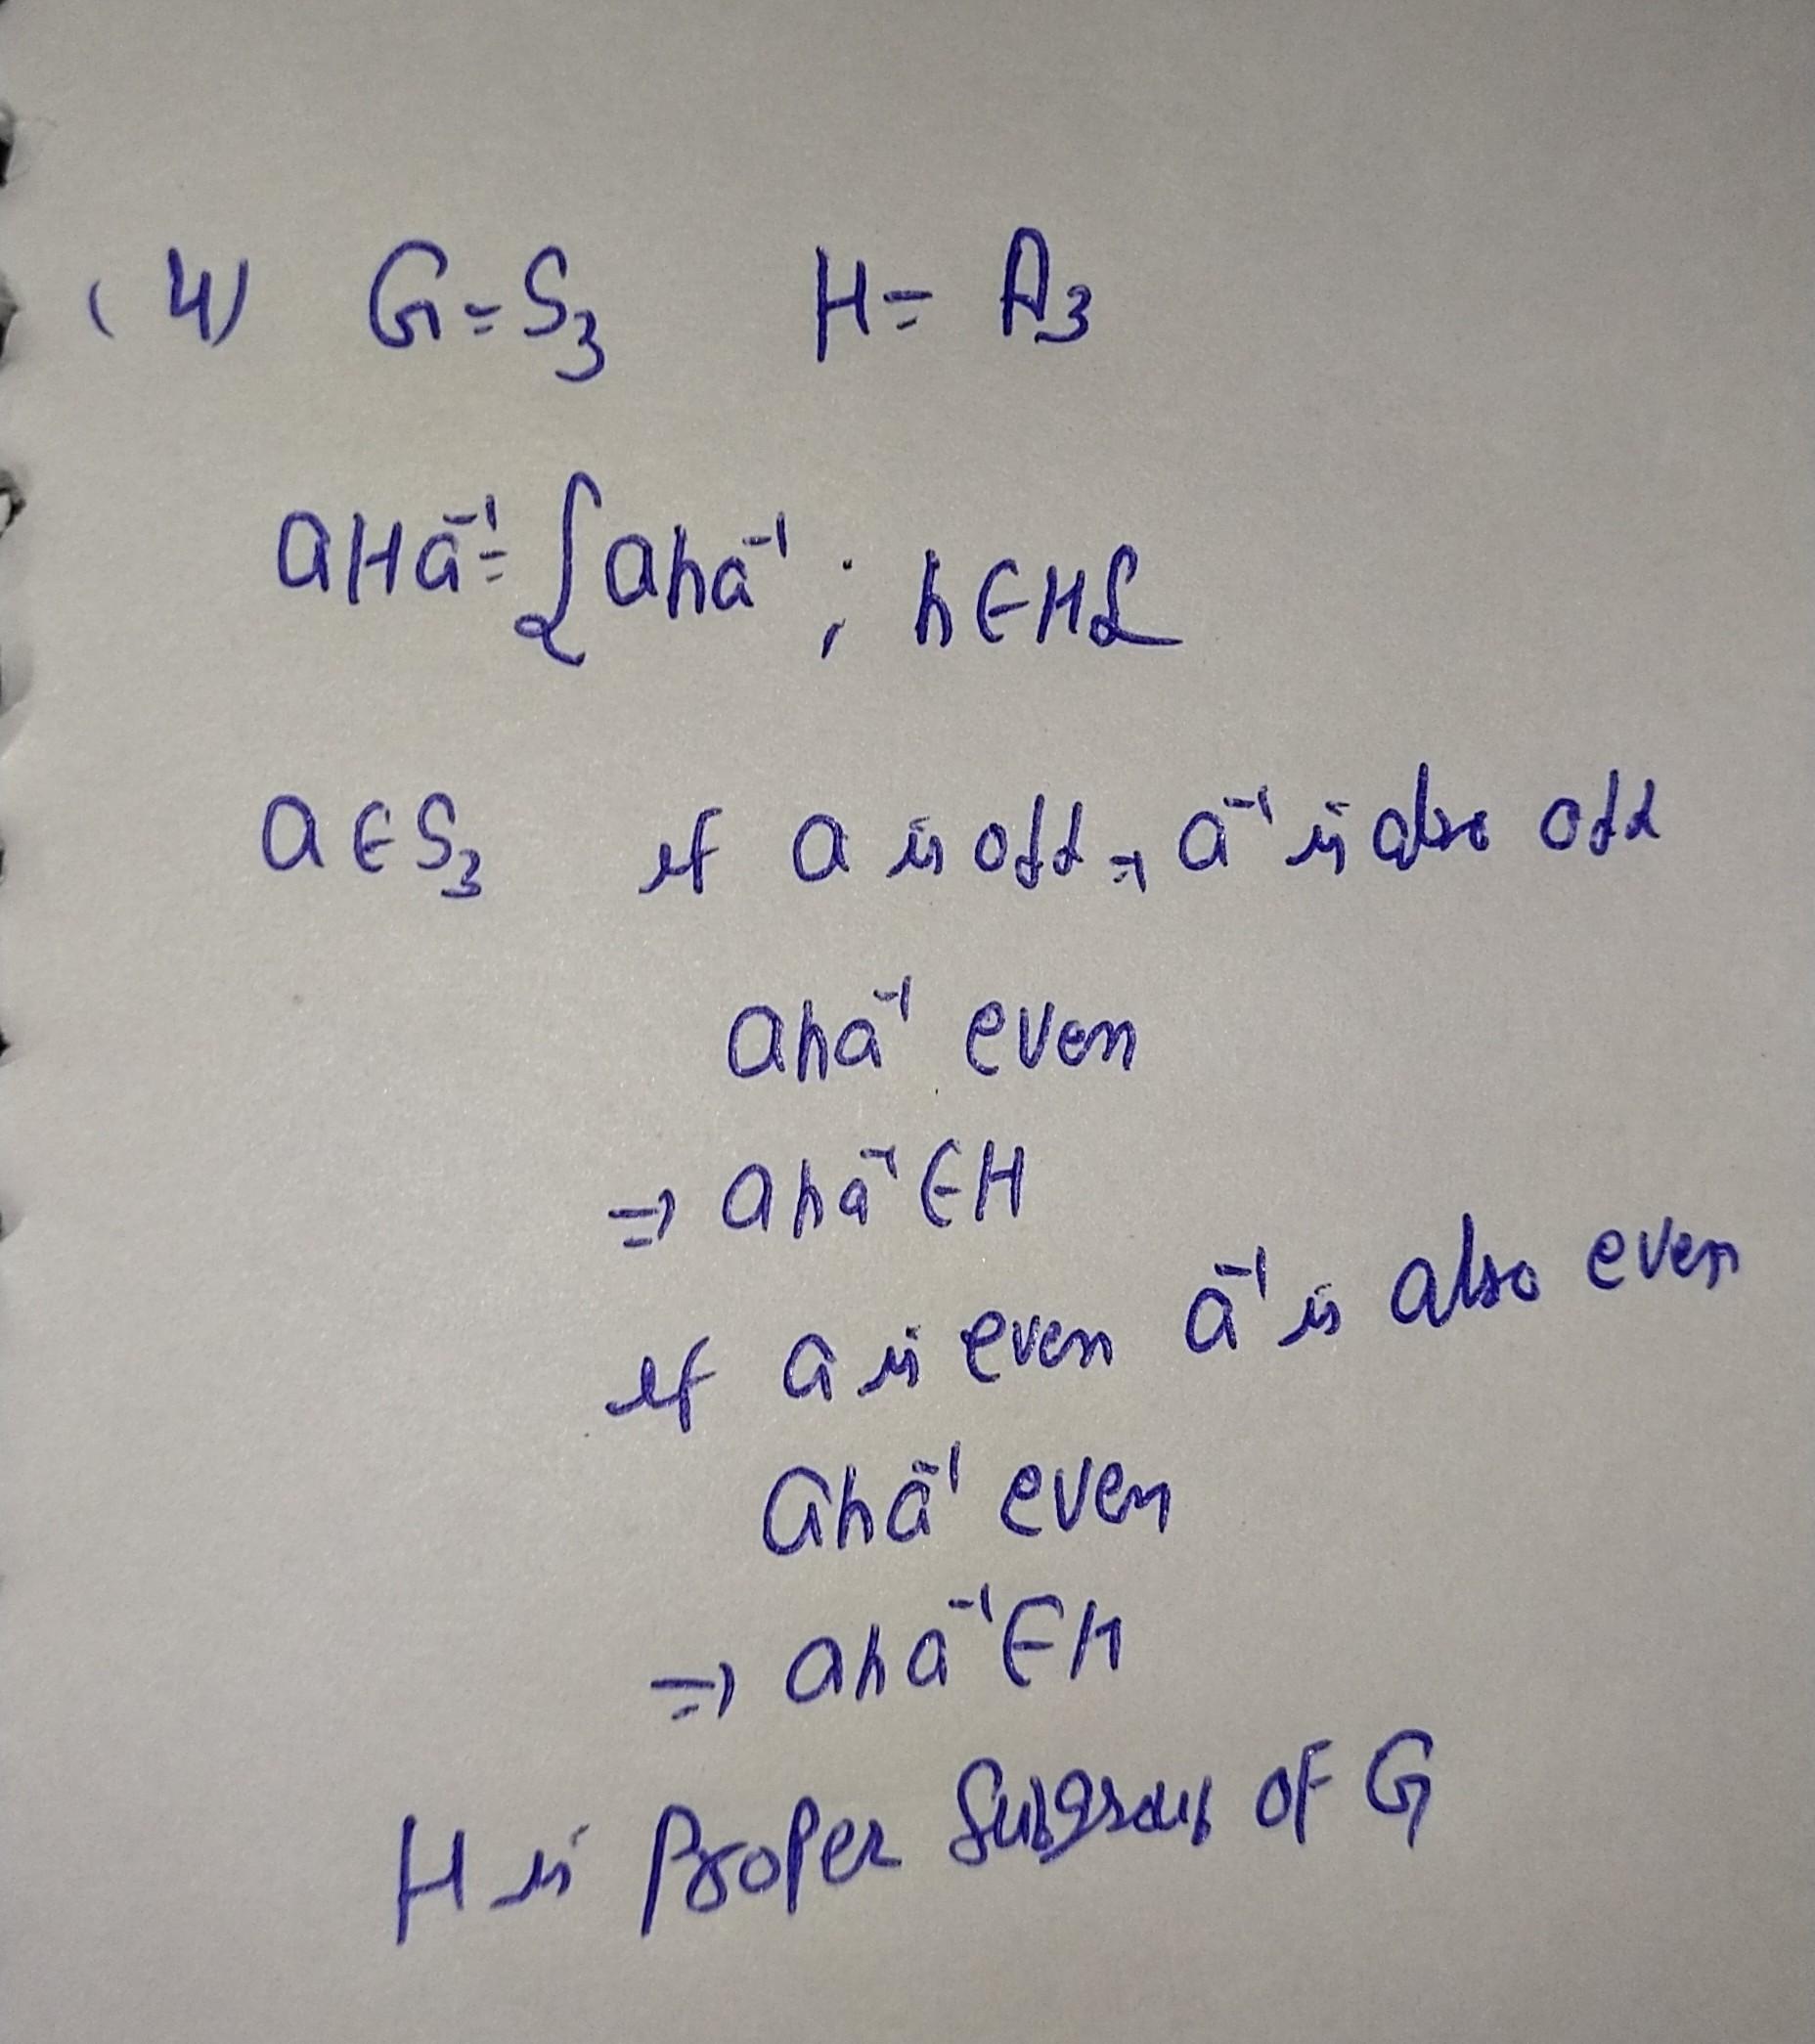 (4) G=S₃ H= A₃
aHa⁻¹= {aha⁻¹ ; h∈H}
a∈S₃ if a is odd ⇒ a⁻¹ is also odd
aha⁻¹ even
⇒ aha⁻¹∈H
if a is even a⁻¹ is also even
aha⁻¹ even
⇒ aha⁻¹∈H
H is Proper Subgroup of G